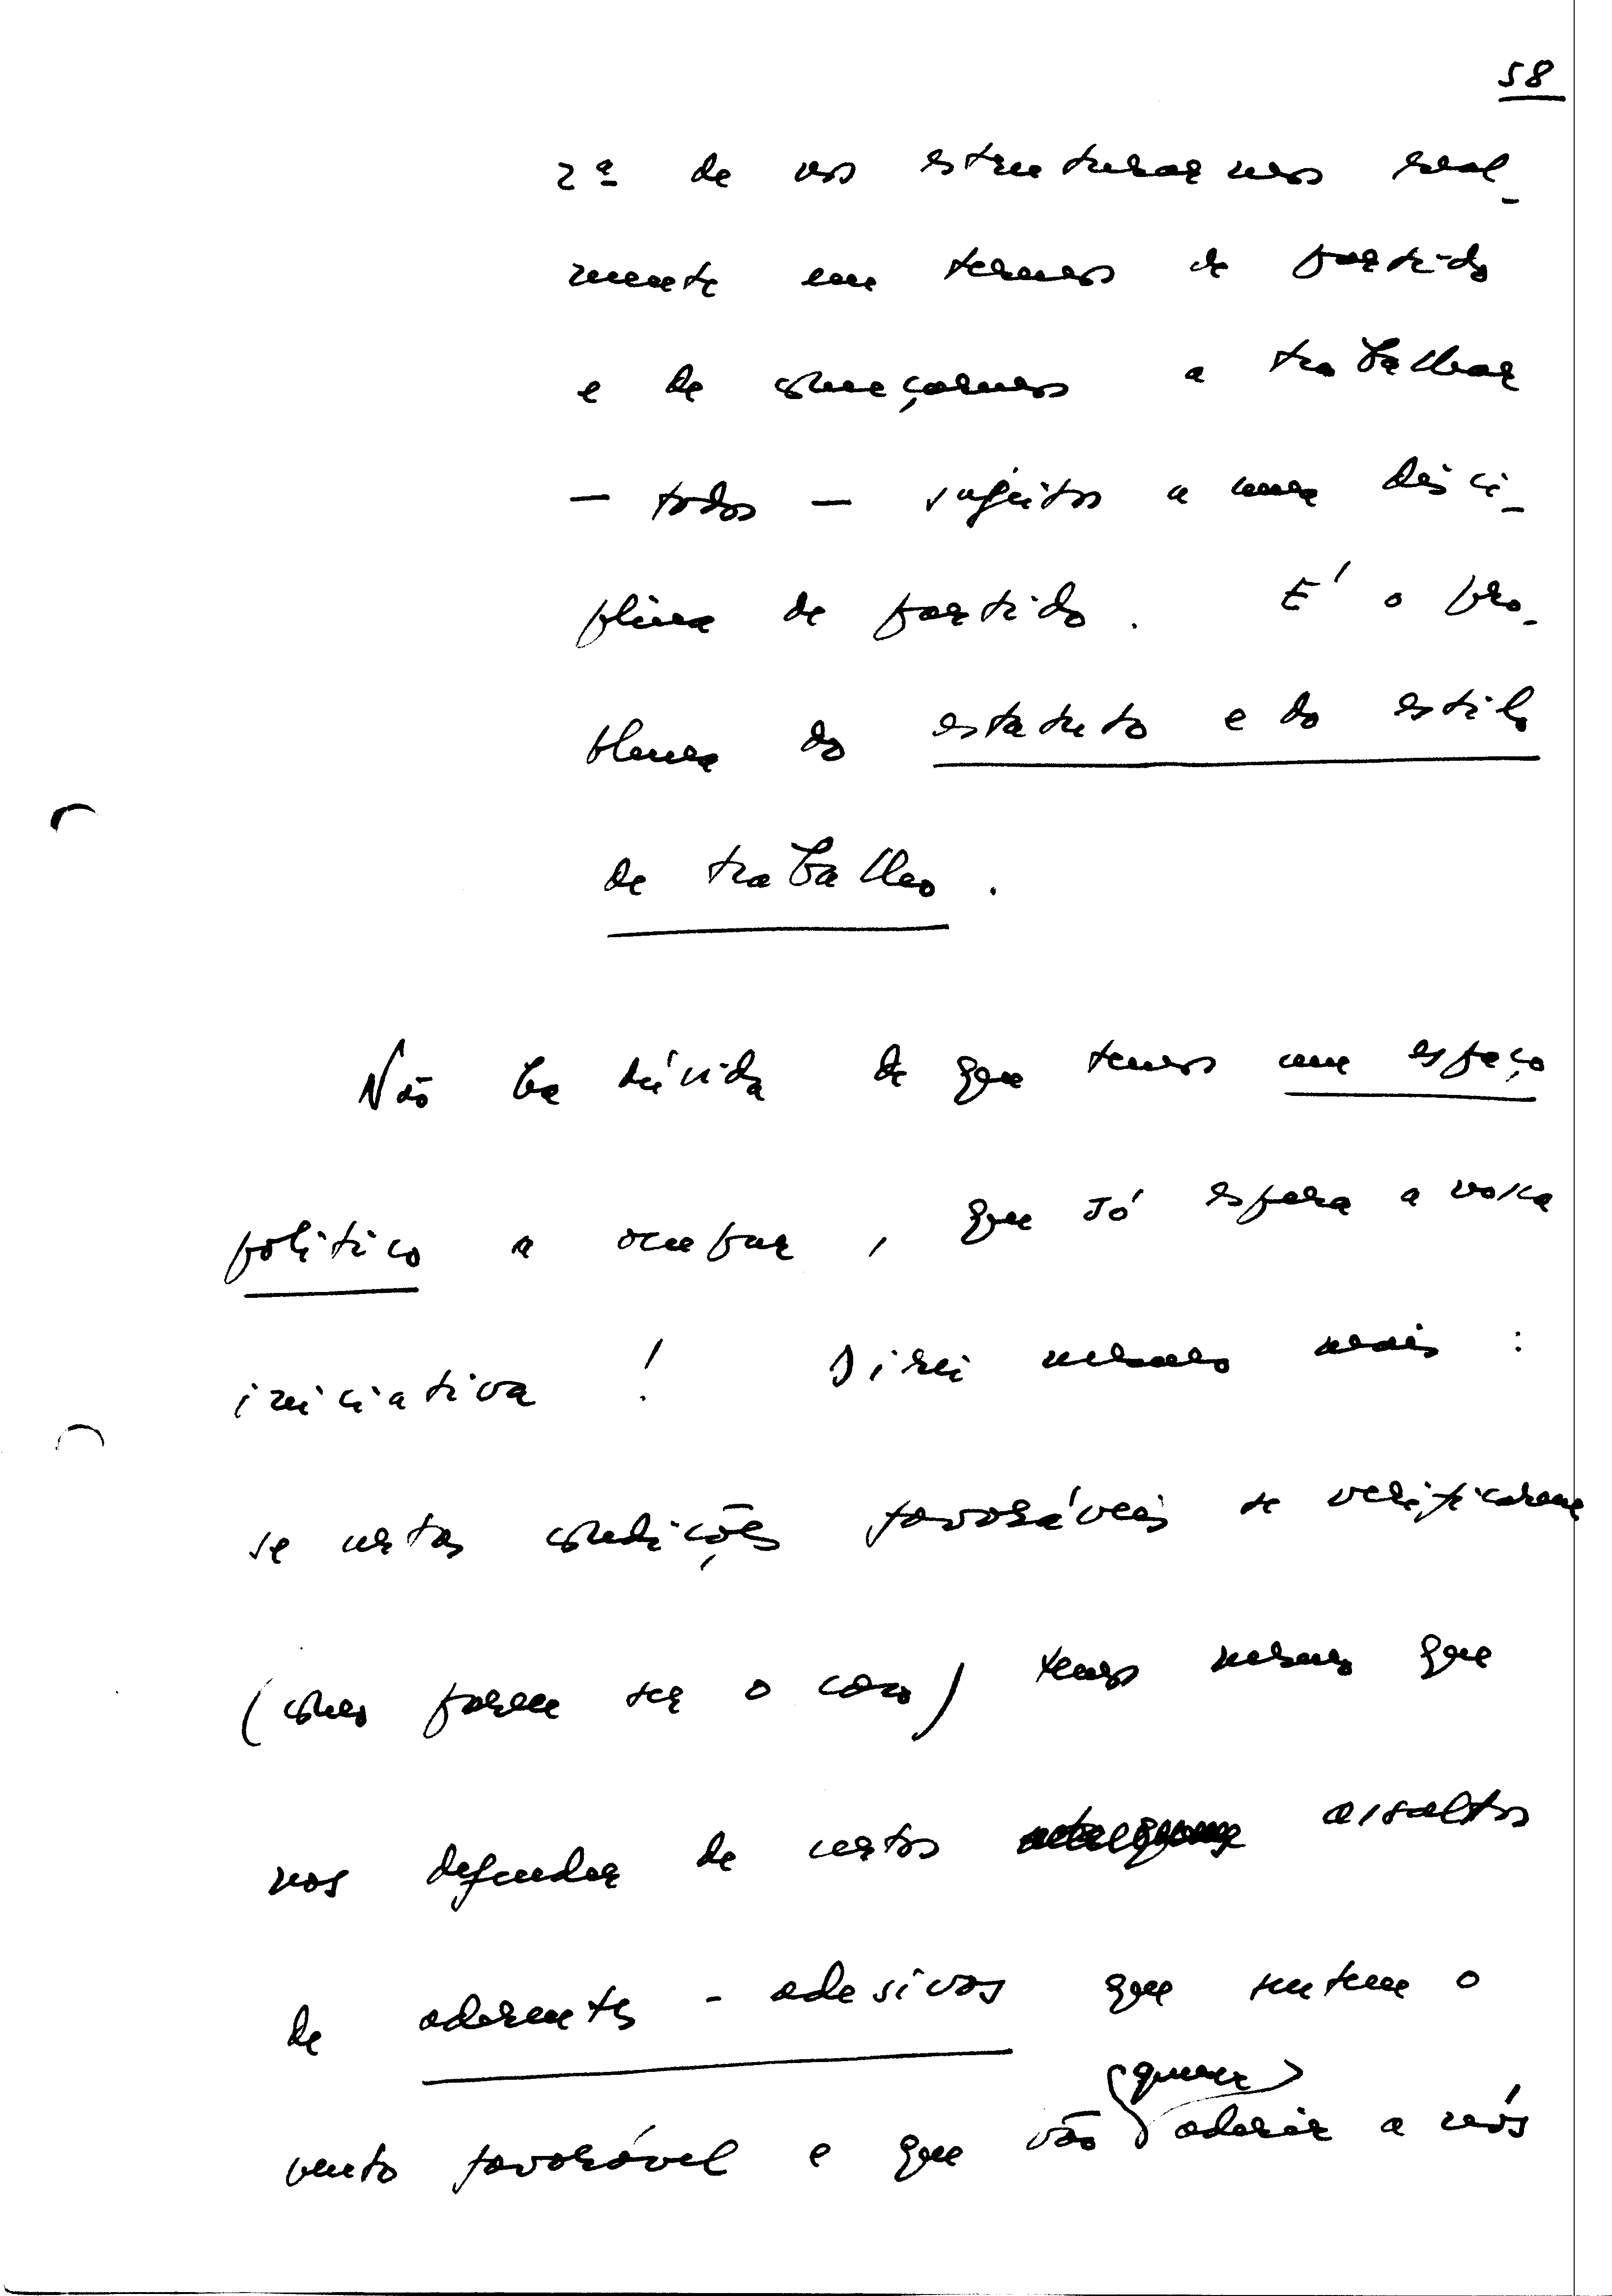 58
2ª de nos estruturarmos real-
mente em termos de partido
e de começarmos a trabalhar
— todos — sujeitos a uma disci-
plina de partido. É o pro-
blema do estatuto e do estilo
de trabalho.
Não há dúvida de que temos um espaço
político a ocupar, que só espera a nossa
iniciativa! Direi mesmo mais:
se certas condições favoráveis se verificarem
(como parece ser o caso) temos mesmo que
nos defender de certos assaltos
de aderentes-adesivos que sentem o
(querer)
vento favorável e que vão aderir a nós